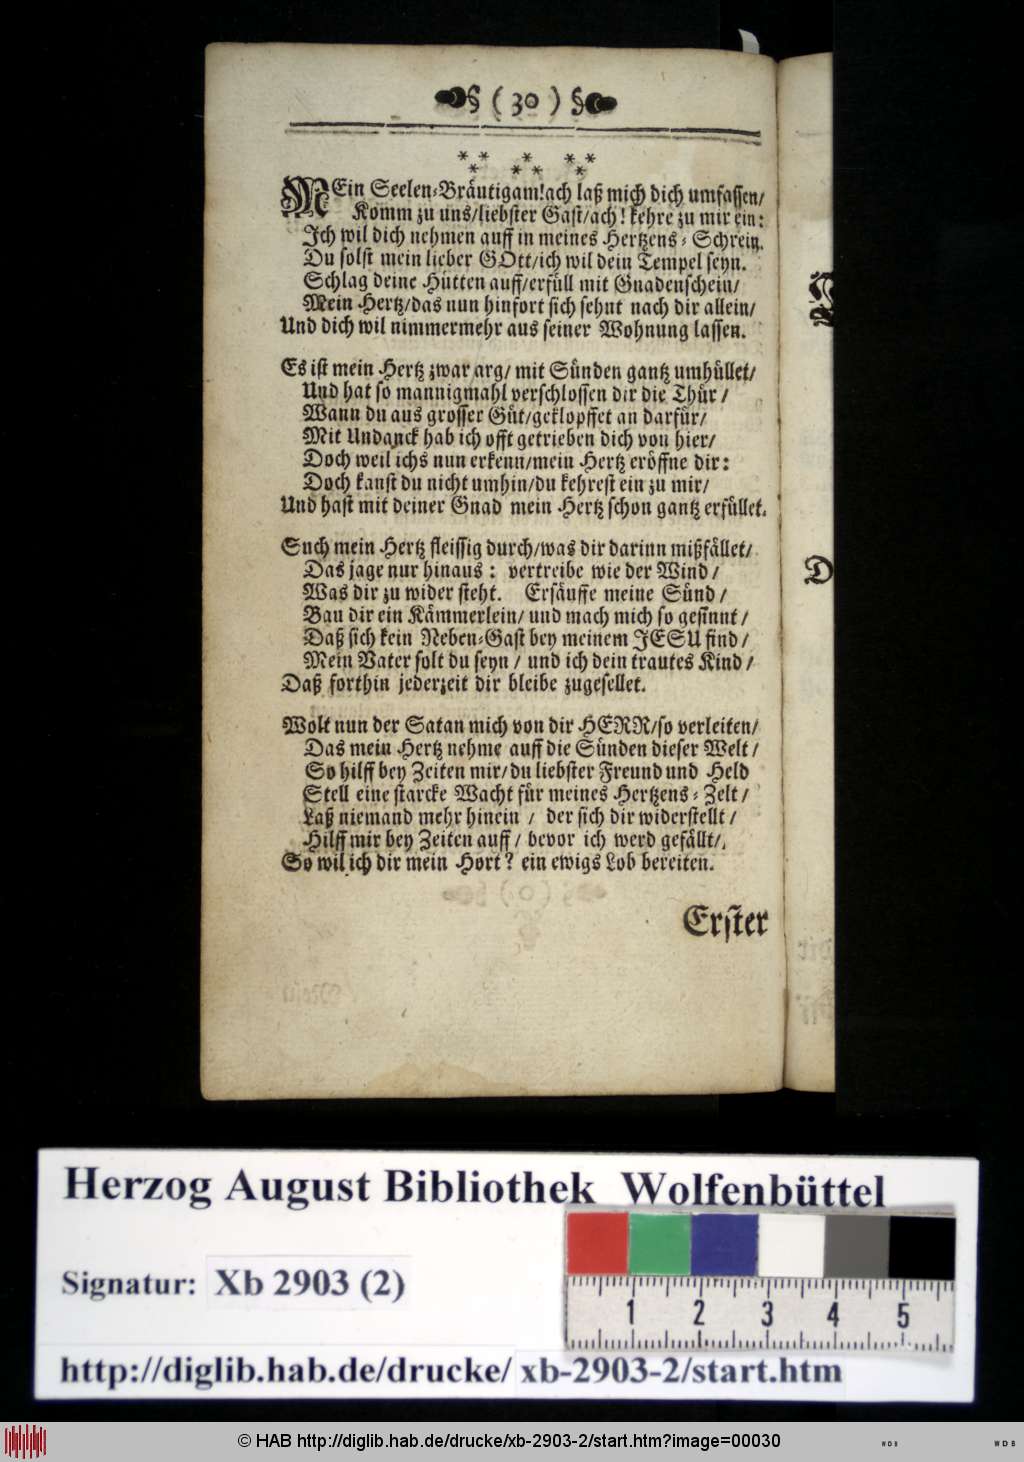 § ( 30 ) §
* * * * *
* * * *
MEin Seelen-Bräutigam! ach laß mich dich umfassen/
Komm zu uns/liebster Gast/ach! kehre zu mir ein:
Ich wil dich nehmen auff in meines Hertzens- Schrein.
Du solst mein lieber GOtt/ich wil dein Tempel seyn.
Schlag deine Hütten auff/erfüll mit Gnadenschein/
Mein Hertz/das nun hinfort sich sehnt nach dir allein/
Und dich wil nimmermehr aus seiner Wohnung lassen.
Es ist mein Hertz zwar arg/ mit Sünden gantz umhüllet/
Und hat so mannigmahl verschlossen dir die Thür /
Wann du aus grosser Güt/geklopffet an darfür/
Mit Undanck hab ich offt getrieben dich von hier/
Doch weil ichs nun erkenn/mein Hertz eröffne dir:
Doch kanst du nicht umhin/du kehrest ein zu mir/
Und hast mit deiner Gnad mein Hertz schon gantz erfüllet.
Such mein Hertz fleissig durch/was dir darinn mißfället/
Das jage nur hinaus: vertreibe wie der Wind /
Was dir zu wider steht. Ersäuffe meine Sünd /
Bau dir ein Kämmerlein/ und mach mich so gesinnt /
Daß sich kein Neben-Gast bey meinem JESU find /
Mein Vater solt du seyn / und ich dein trautes Kind /
Daß forthin jederzeit dir bleibe zugesellet.
Wolt nun der Satan mich von dir HERR/so verleiten/
Das mein Hertz nehme auff die Sünden dieser Welt /
So hilff bey Zeiten mir/du liebster Freund und Held
Stell eine starcke Wacht für meines Hertzens- Zelt /
Laß niemand mehr hinein / der sich dir widerstellt /
Hilff mir bey Zeiten auff / bevor ich werd gefällt/
So wil ich dir mein Hort? ein ewigs Lob bereiten.
Erster
D
Herzog August Bibliothek Wolfenbüttel
Signatur: Xb 2903 (2)
1 2 3 4 5
http://diglib.hab.de/drucke/ xb-2903-2/start.htm
© HAB http://diglib.hab.de/drucke/xb-2903-2/start.htm?image=00030
WDB
WDB